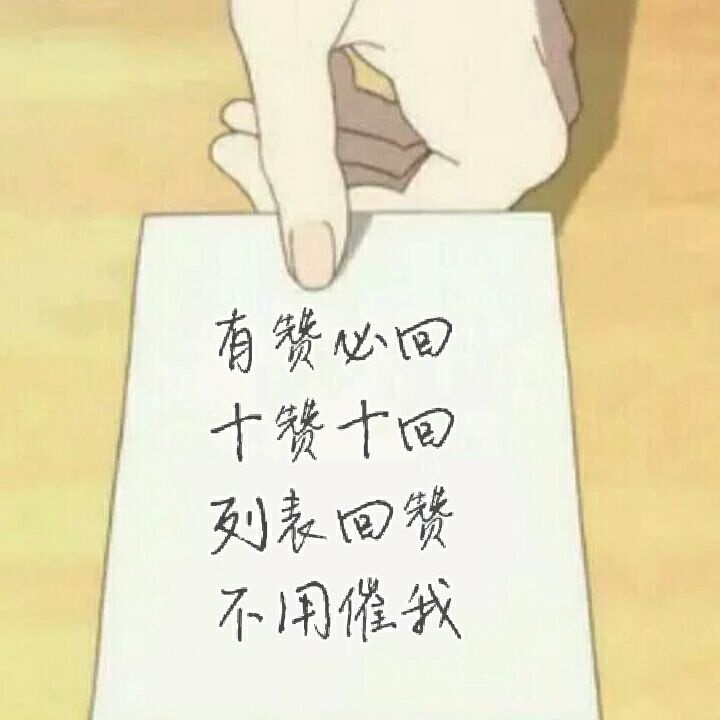 有赞必回
十赞十回
列表回赞
不用催我